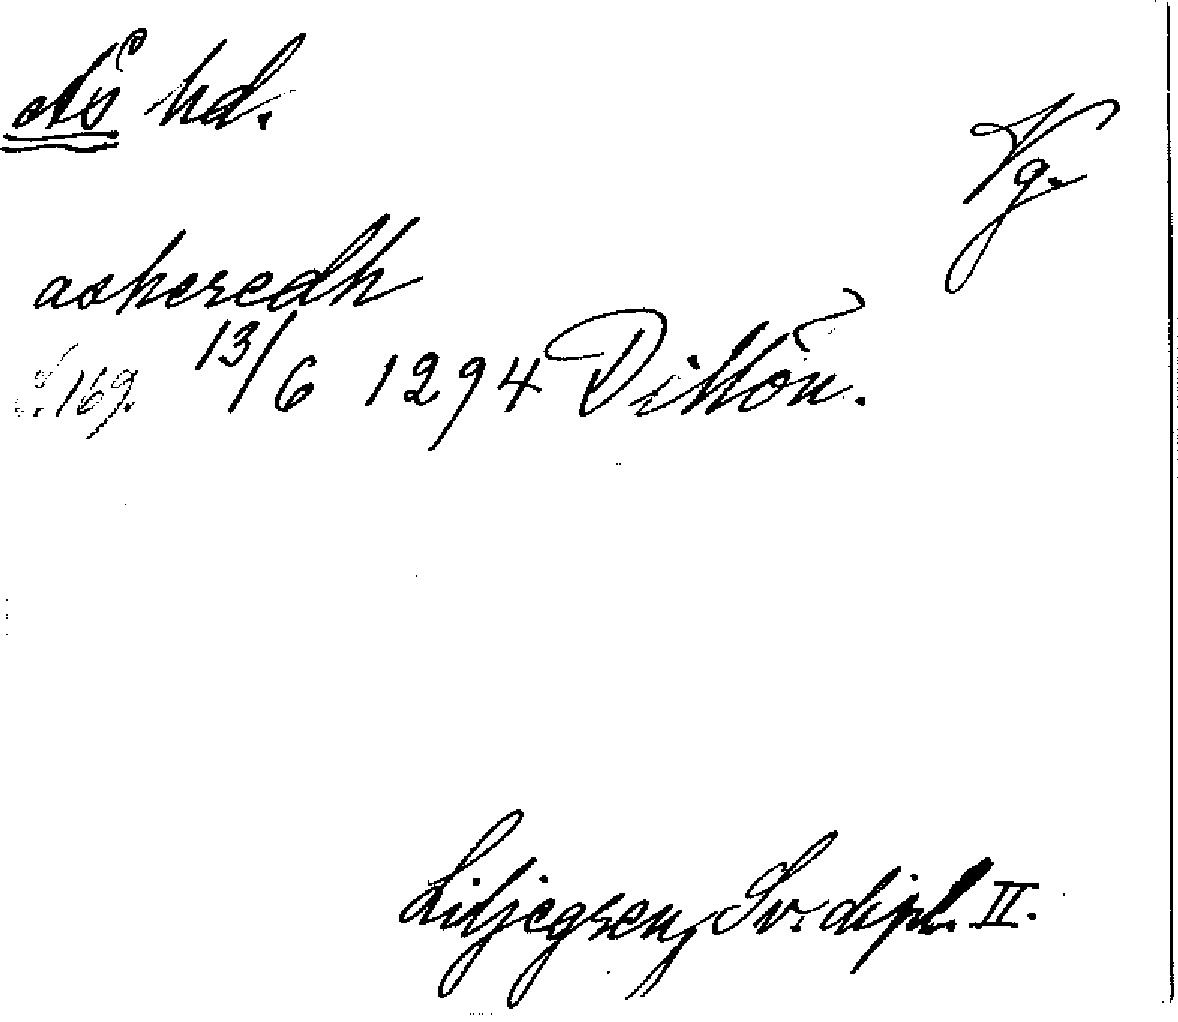 Ås hd.
Vg.
askeredh
S. 169. 13/6 1294 Dillön.
Liljegren, Sv. dipl. II.